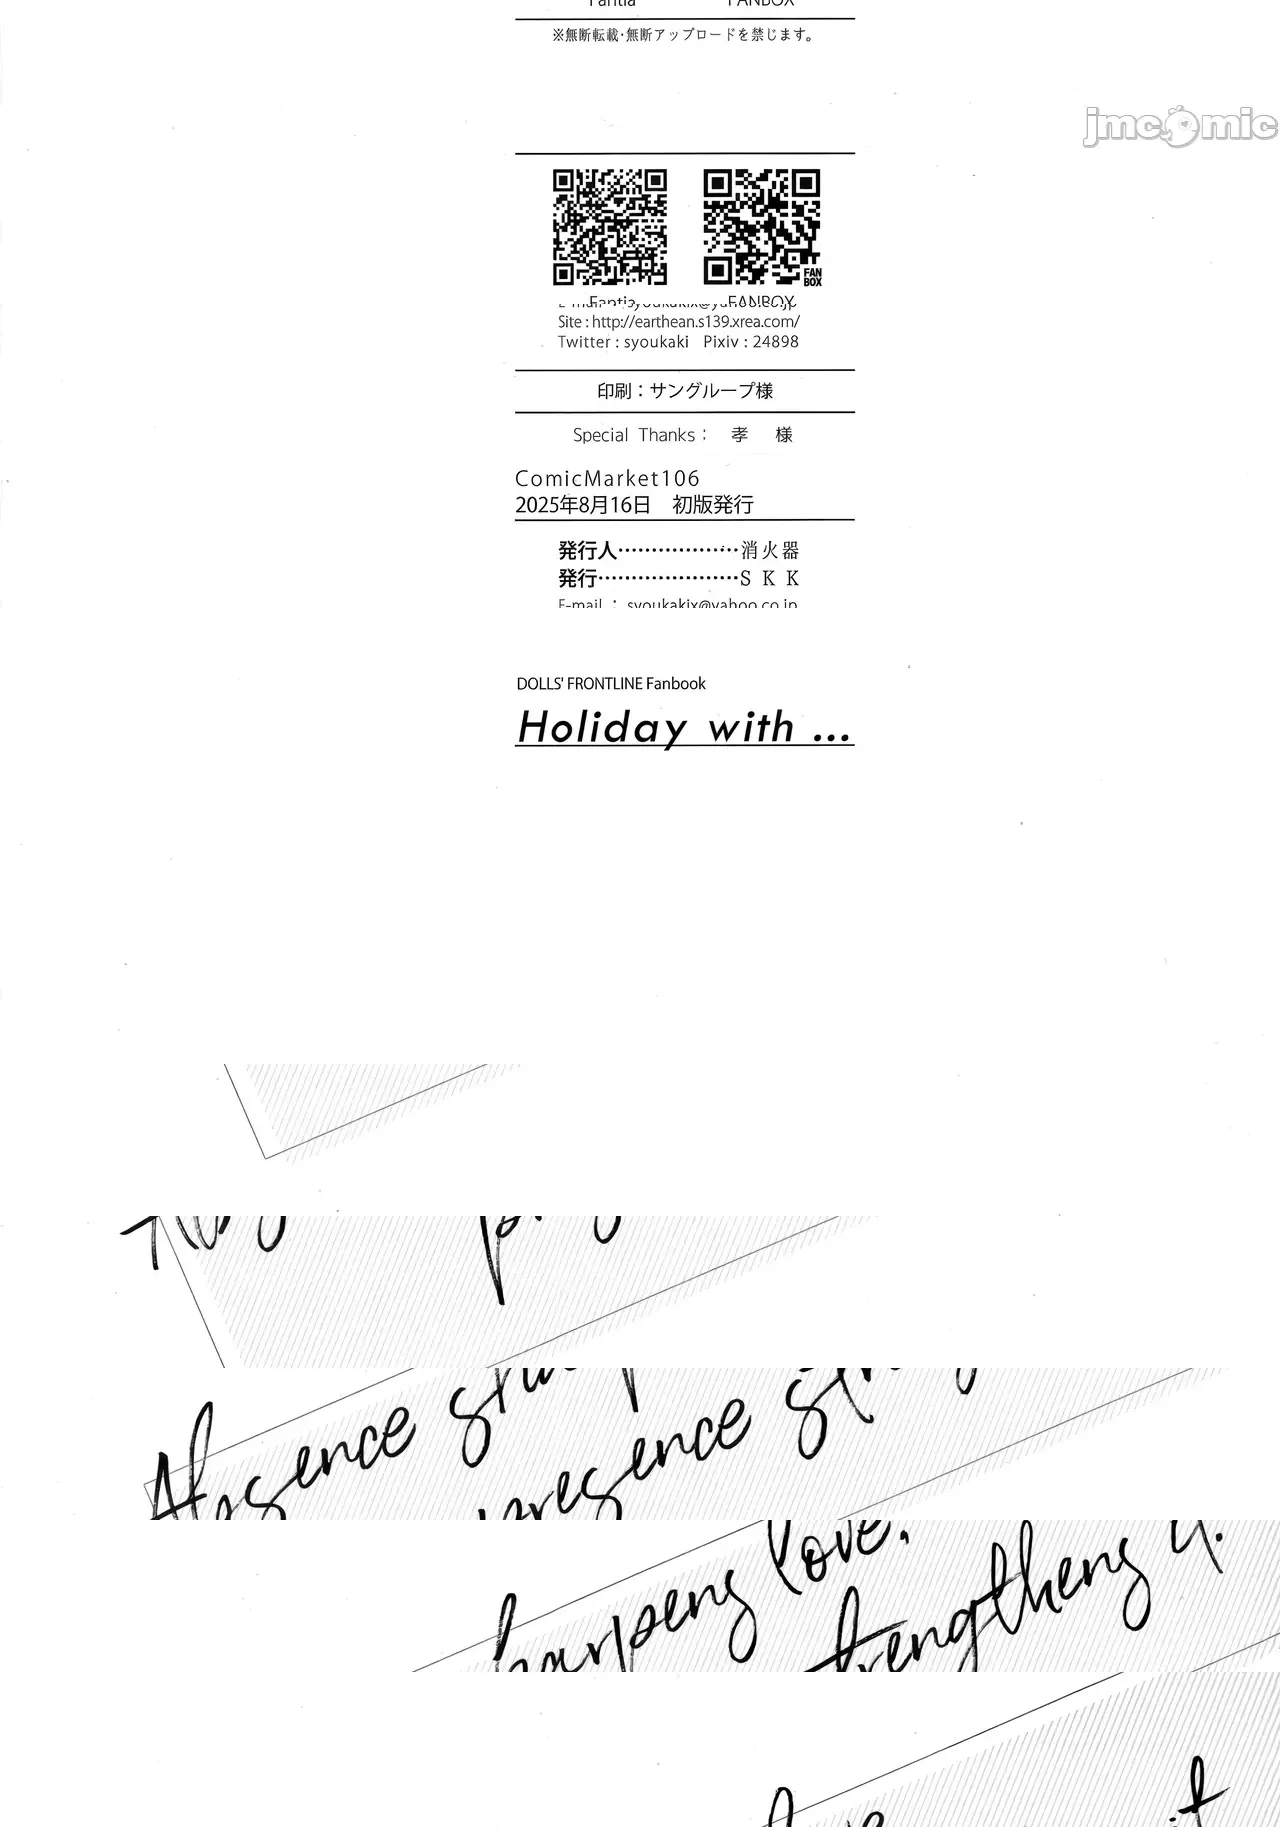 FANBOX
※無断転載・無断アップロードを禁じます。
jmcomic
FAN
BOX
Fantia FANBOX
Site : http://earthean.s139.xrea.com/
Twitter : syoukaki Pixiv : 24898
印刷：サングループ様
Special Thanks： 孝 様
ComicMarket106
2025年8月16日 初版発行
発行人………………消火器
発行…………………ＳＫＫ
E-mail : syoukakix@yahoo.co.jp
DOLLS' FRONTLINE Fanbook
Holiday with ...
Absence
presence
love,